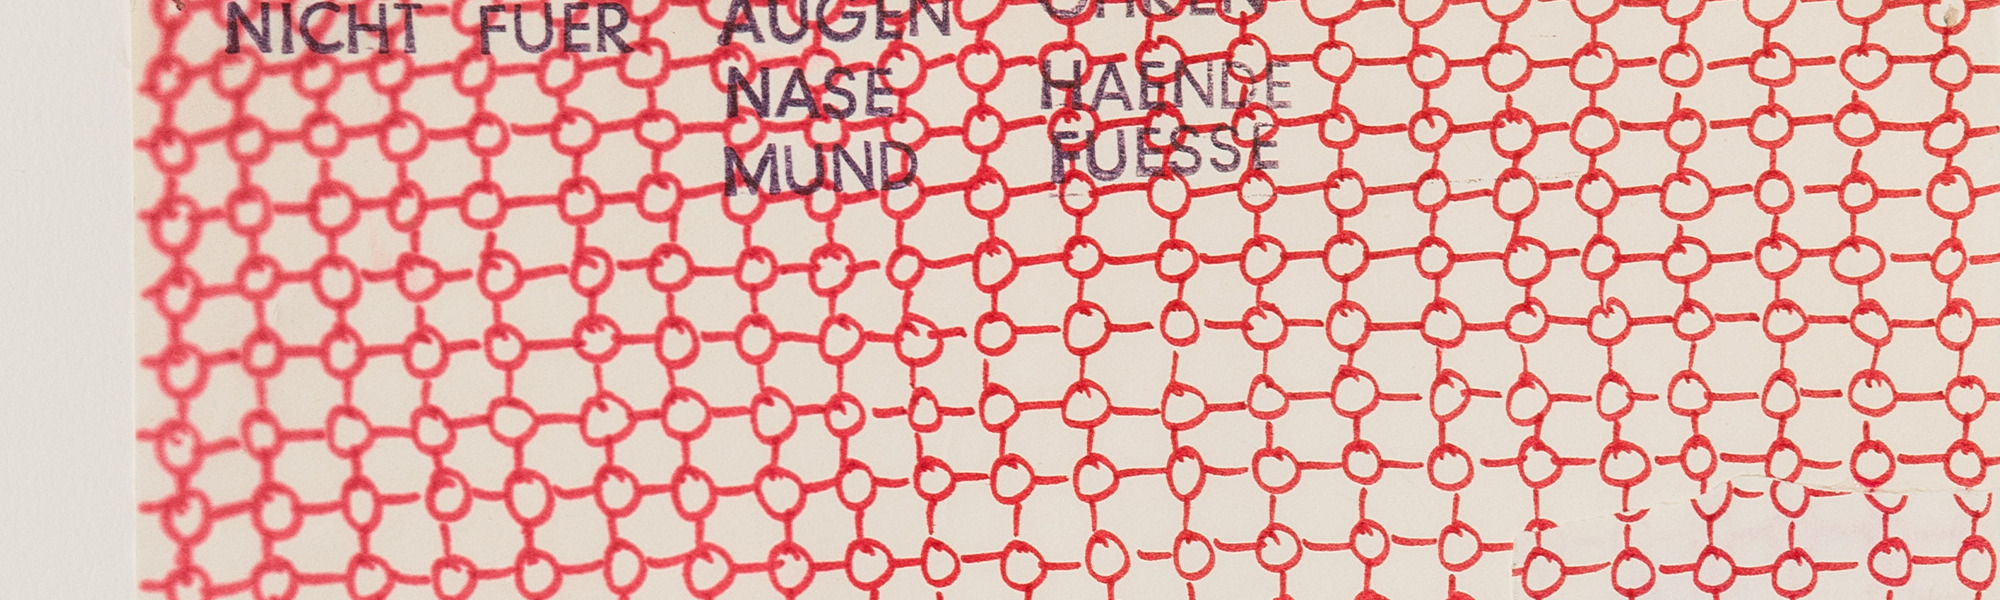 NICHT FUER AUGEN OHREN
NASE HAENDE
MUND FUESSE